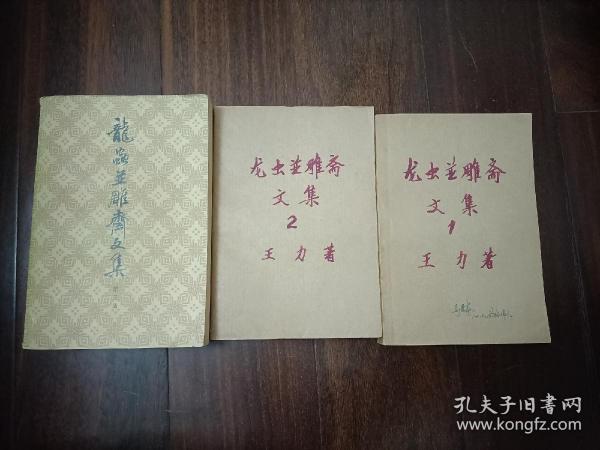 龍蟲並雕齋文集
龙虫並雕斋
文集
2
王力著
龙虫並雕斋
文集
1
王力著
孔夫子旧书网
www.kongfz.com